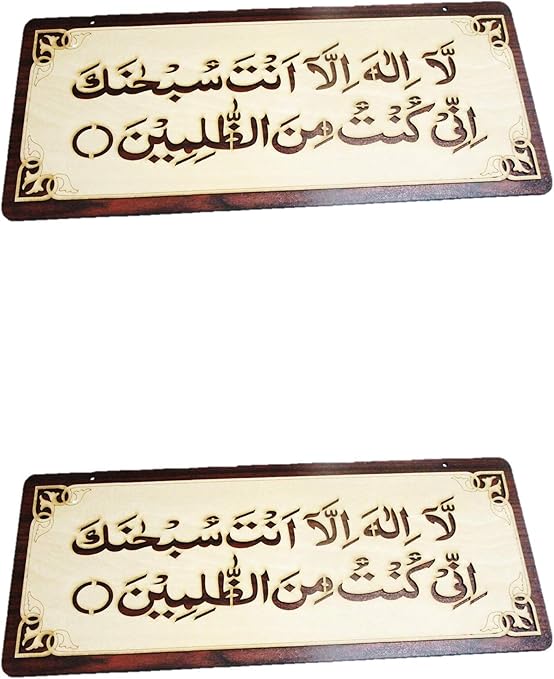 لَّآ اِلٰهَ اِلَّآ اَنْتَ سُبْحٰنَكَ
اِنِّىْ كُنْتُ مِنَ الظّٰلِمِيْنَ ۝
لَّآ اِلٰهَ اِلَّآ اَنْتَ سُبْحٰنَكَ
اِنِّىْ كُنْتُ مِنَ الظّٰلِمِيْنَ ۝